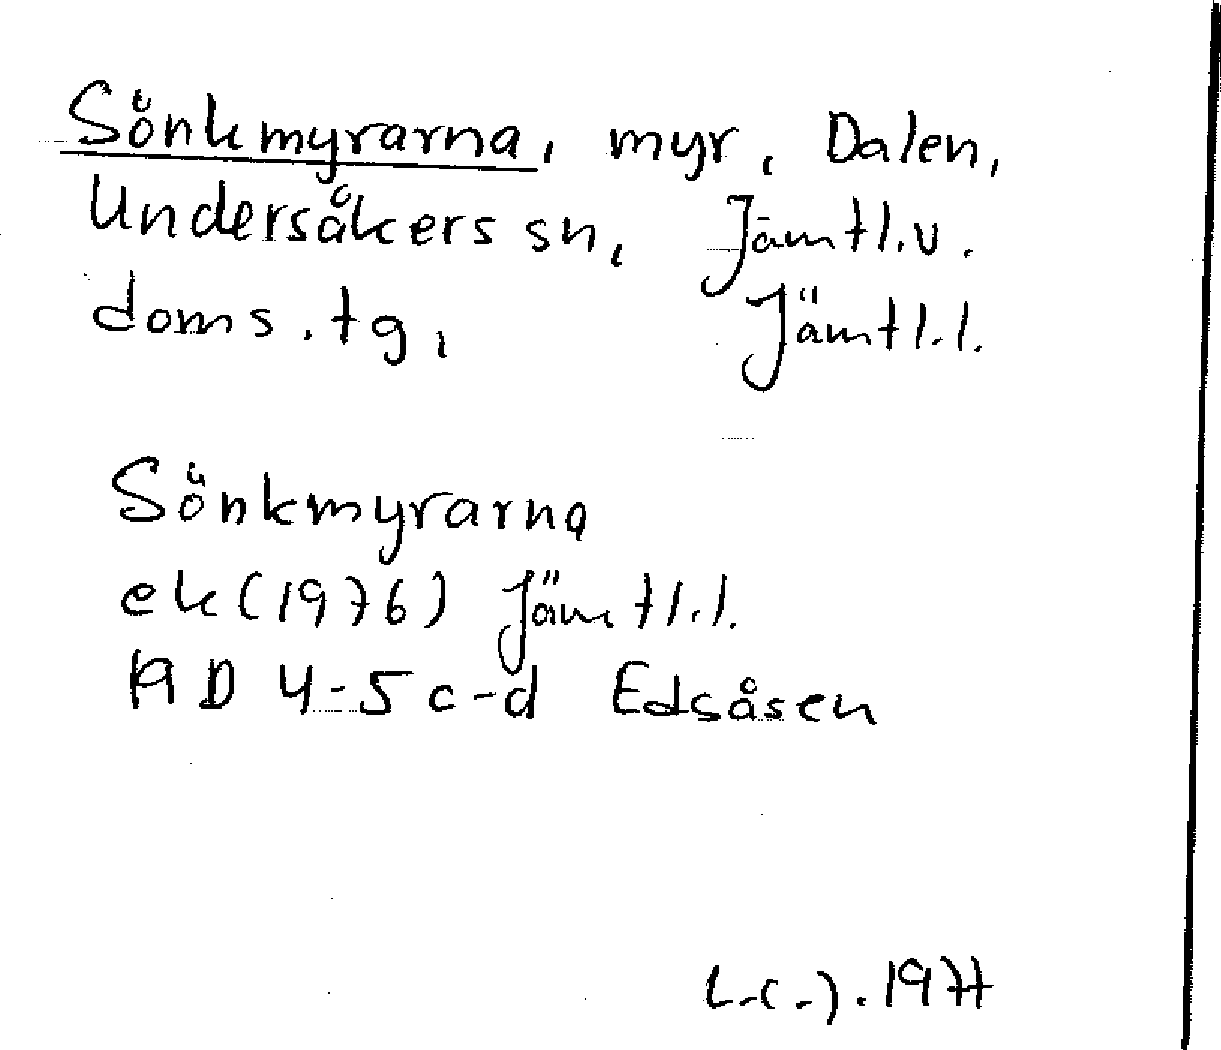 Sönkmyrarna, myr, Dalen,
Undersåkers sn, Jämtl.v.
doms.tg, Jämtl.l.
Sönkmyrarna
ek(1976) Jämtl.l.
19D 4-5 c-d Edsåsen
L.C.J. 1977